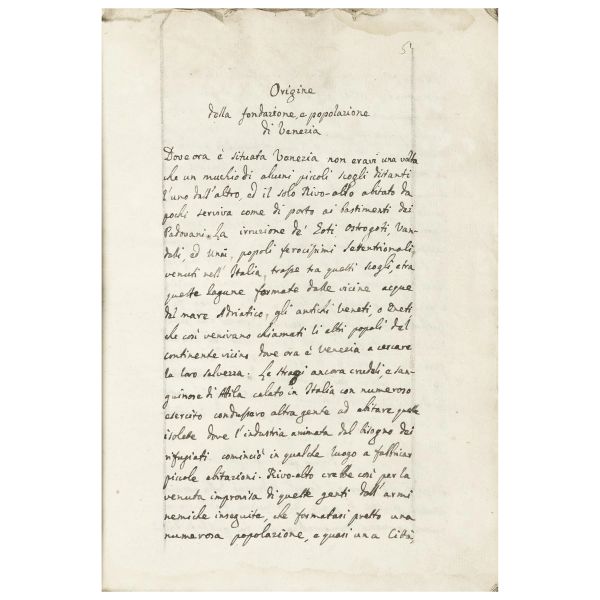 5
Origine
della fondazione, e popolazione
di Venezia
Dove ora è situata Venezia non eravi una volta
che un muchio di alcuni piccoli scogli distanti
l'uno dall'altro, ed il solo Rivo-alto abitato da
pochi serviva come di porto ai bastimenti dei
Padovani. La irruzione de' Goti Ostrogoti, Van-
dali, ed Unni, popoli ferocissimi settentrionali
venuti nell'Italia, trasse tra questi scogli, e tra
queste lagune formate dalle vicine acque
del mare Adriatico, gli antichi Veneti, o Eneti
che così venivano chiamati li altri popoli del
continente vicino dove ora è Venezia a cercare
la loro salvezza. Le stragi ancora crudeli, e san-
guinose di Attila calato in Italia con numeroso
esercito condussero altra gente ad abitare queste
isolete dove l'industria animata dal bisogno dei
rifugiati cominciò in qualche luogo a fabbricar
piccole abitazioni. Rivo-alto crebbe così per la
venuta improvisa di queste genti dall'armi
nemiche inseguite, che formatasi presto una
numerosa popolazione, e quasi una Città,